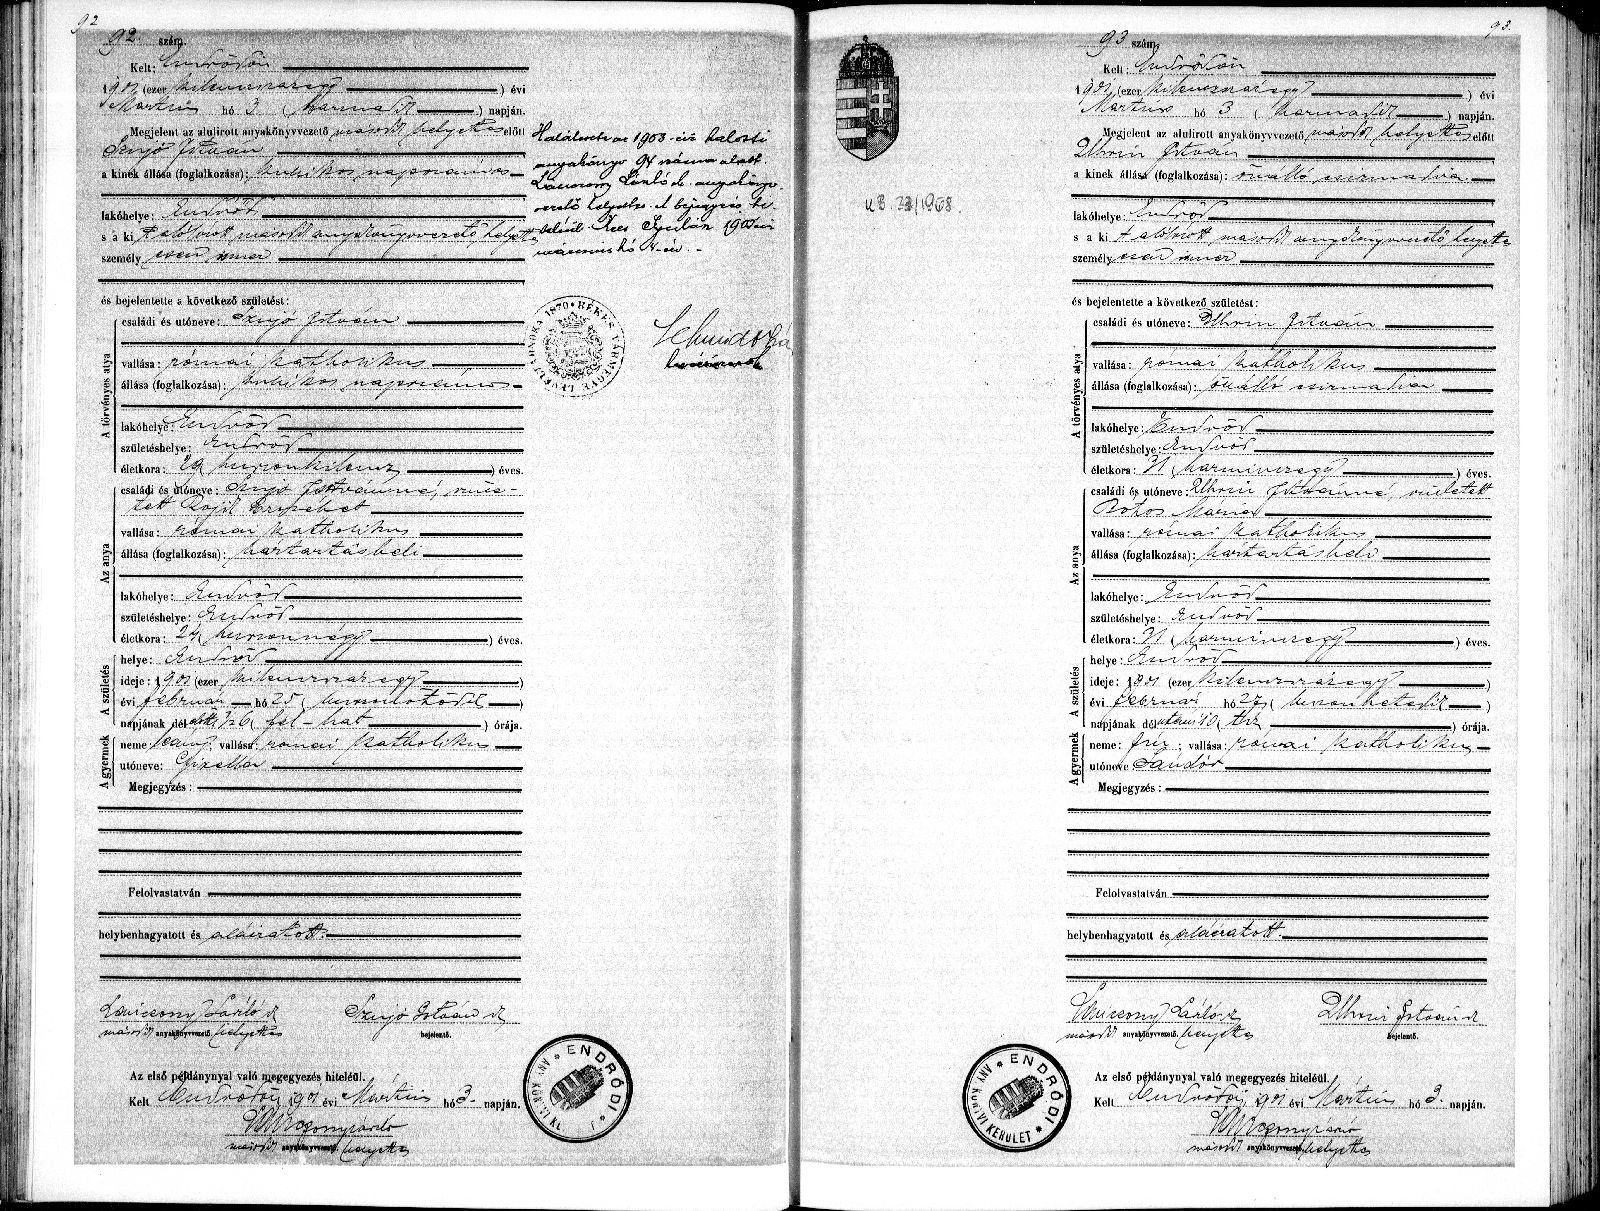 92
92 szám.
Kelt: Endrődön
1901 (ezer kilenszázegy) évi
Mártius hó 3 (harmadik) napján.
Megjelent az alulirott anyakönyvvezető másod helyettes előtt
Szujó István
a kinek állása (foglalkozása): kubikos napszámos
lakóhelye: Endrőd
s a ki alólirott másod anyakönyvvezető helyettes
személyesen ismer
és bejelentette a következő születést:
A törvényes atya
családi és utóneve: Szujó István
vallása: római katholikus
állása (foglalkozása): kubikos napszámos
lakóhelye: Endrőd
születéshelye: Endrőd
életkora: 29 huszonkilencz) éves.
Az anya
családi és utóneve: Szujó Istvánné, szüle-
tett Erzsébet
vallása: római katholikus
állása (foglalkozása): háztartásbeli
lakóhelye: Endrőd
születéshelye: Endrőd
életkora: 24 (huszonnégy) éves.
A születés
helye: Endrőd
ideje: 1901 (ezer kilenszázegy)
évi február hó 25 (huszonötödik)
napjának dél előtti 1/26 (fél-hat) órája.
A gyermek
neme: leány; vallása: római katholikus
utóneve: Gizella
Megjegyzés:
Felolvastatván
helybenhagyatott és aláiratott.
László Szujó István
másod anyakönyvvezető. helyettes bejelentő.
Az első példánynyal való megegyezés hiteléül.
Kelt Endrődön, 1901 évi Mártius hó 3. napján.
László
másod anyakönyvvezető helyettes
ENDRŐDI
Halálesete az 1903. évi halotti
anyakönyv 94 száma alatt.
László s. anyakönyv-
vezető helyettes. A bejegyzés hi-
teléül. Gyulán 1903 évi
hó
BÉKÉS VÁRMEGYE LEVÉLTÁRNOKA 1870
93.
93 szám.
UB. 23/1968.
Kelt: Endrődön
1901 (ezer kilenszázegy) évi
Mártius hó 3 (harmadik) napján.
Megjelent az alulirott anyakönyvvezető másod helyettes előtt
Uhrin István
a kinek állása (foglalkozása): önálló csizmadia
lakóhelye: Endrőd
s a ki alólirott másod anyakönyvvezető helyettes
személyesen ismer
és bejelentette a következő születést:
A törvényes atya
családi és utóneve: Uhrin István
vallása: római katholikus
állása (foglalkozása): önálló csizmadia
lakóhelye: Endrőd
születéshelye: Endrőd
életkora: 31 (harminczegy) éves.
Az anya
családi és utóneve: Uhrin Istvánné, született
Botos Mária
vallása: római katholikus
állása (foglalkozása): háztartásbeli
lakóhelye: Endrőd
születéshelye: Endrőd
életkora: 31 (harminczegy) éves.
A születés
helye: Endrőd
ideje: 1901 (ezer kilenszázegy)
évi február hó 27 (huszonhetedik)
napjának dél utáni 10 (tíz) órája.
A gyermek
neme: fiú; vallása: római katholikus
utóneve Sándor
Megjegyzés:
Felolvastatván
helybenhagyatott és aláiratott.
László Uhrin István
másod anyakönyvvezető. helyettes bejelentő.
Az első példánynyal való megegyezés hiteléül.
Kelt Endrődön, 1901 évi Mártius hó 3. napján.
László
másod anyakönyvvezető helyettes
ENDRŐDI ANYAKÖNYVI KERÜLET